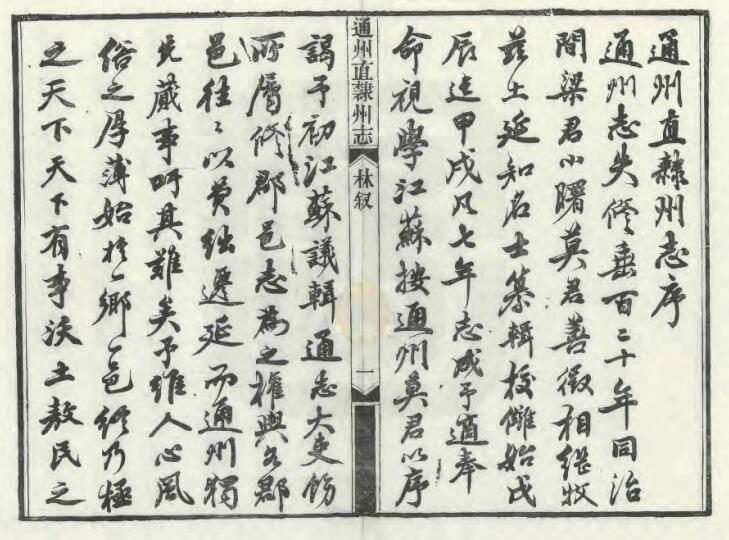 通州直隸州志序
通州志失修垂百二十年同治
間梁君小曙莫君善徵相繼牧
茲土延知名士纂輯校讎始戊
辰迄甲戌凡七年志成予適奉
命視學江蘇按通州莫君以序
通州直隸州志
林叙
一
謁予初江蘇議輯通志大吏飭
所屬修郡邑志為之權輿各郡
邑往〻以費絀遷延而通州獨
先蕆事吁其難矣予維人心風
俗之厚薄始於一鄉一邑終乃極
之天下天下有事沃土敖民之